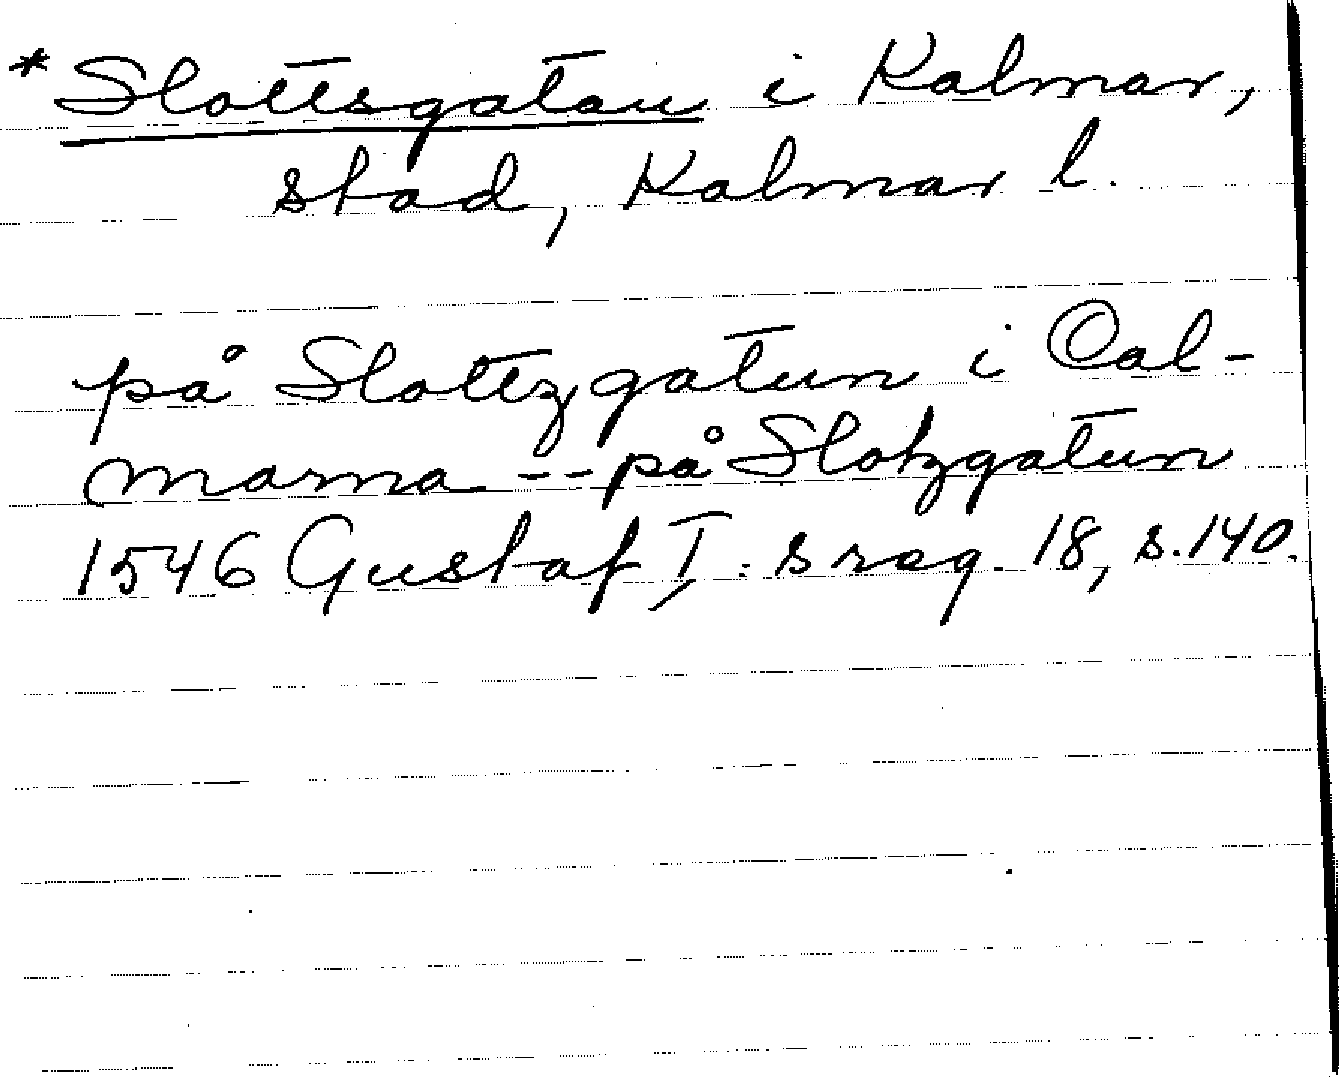 * Slottsgatan i Kalmar,
stad, Kalmar l.
på Slottzgatun i Cal-
marna -- på Slotzgatun
1546 Gustaf I:s reg. 18, s. 140.